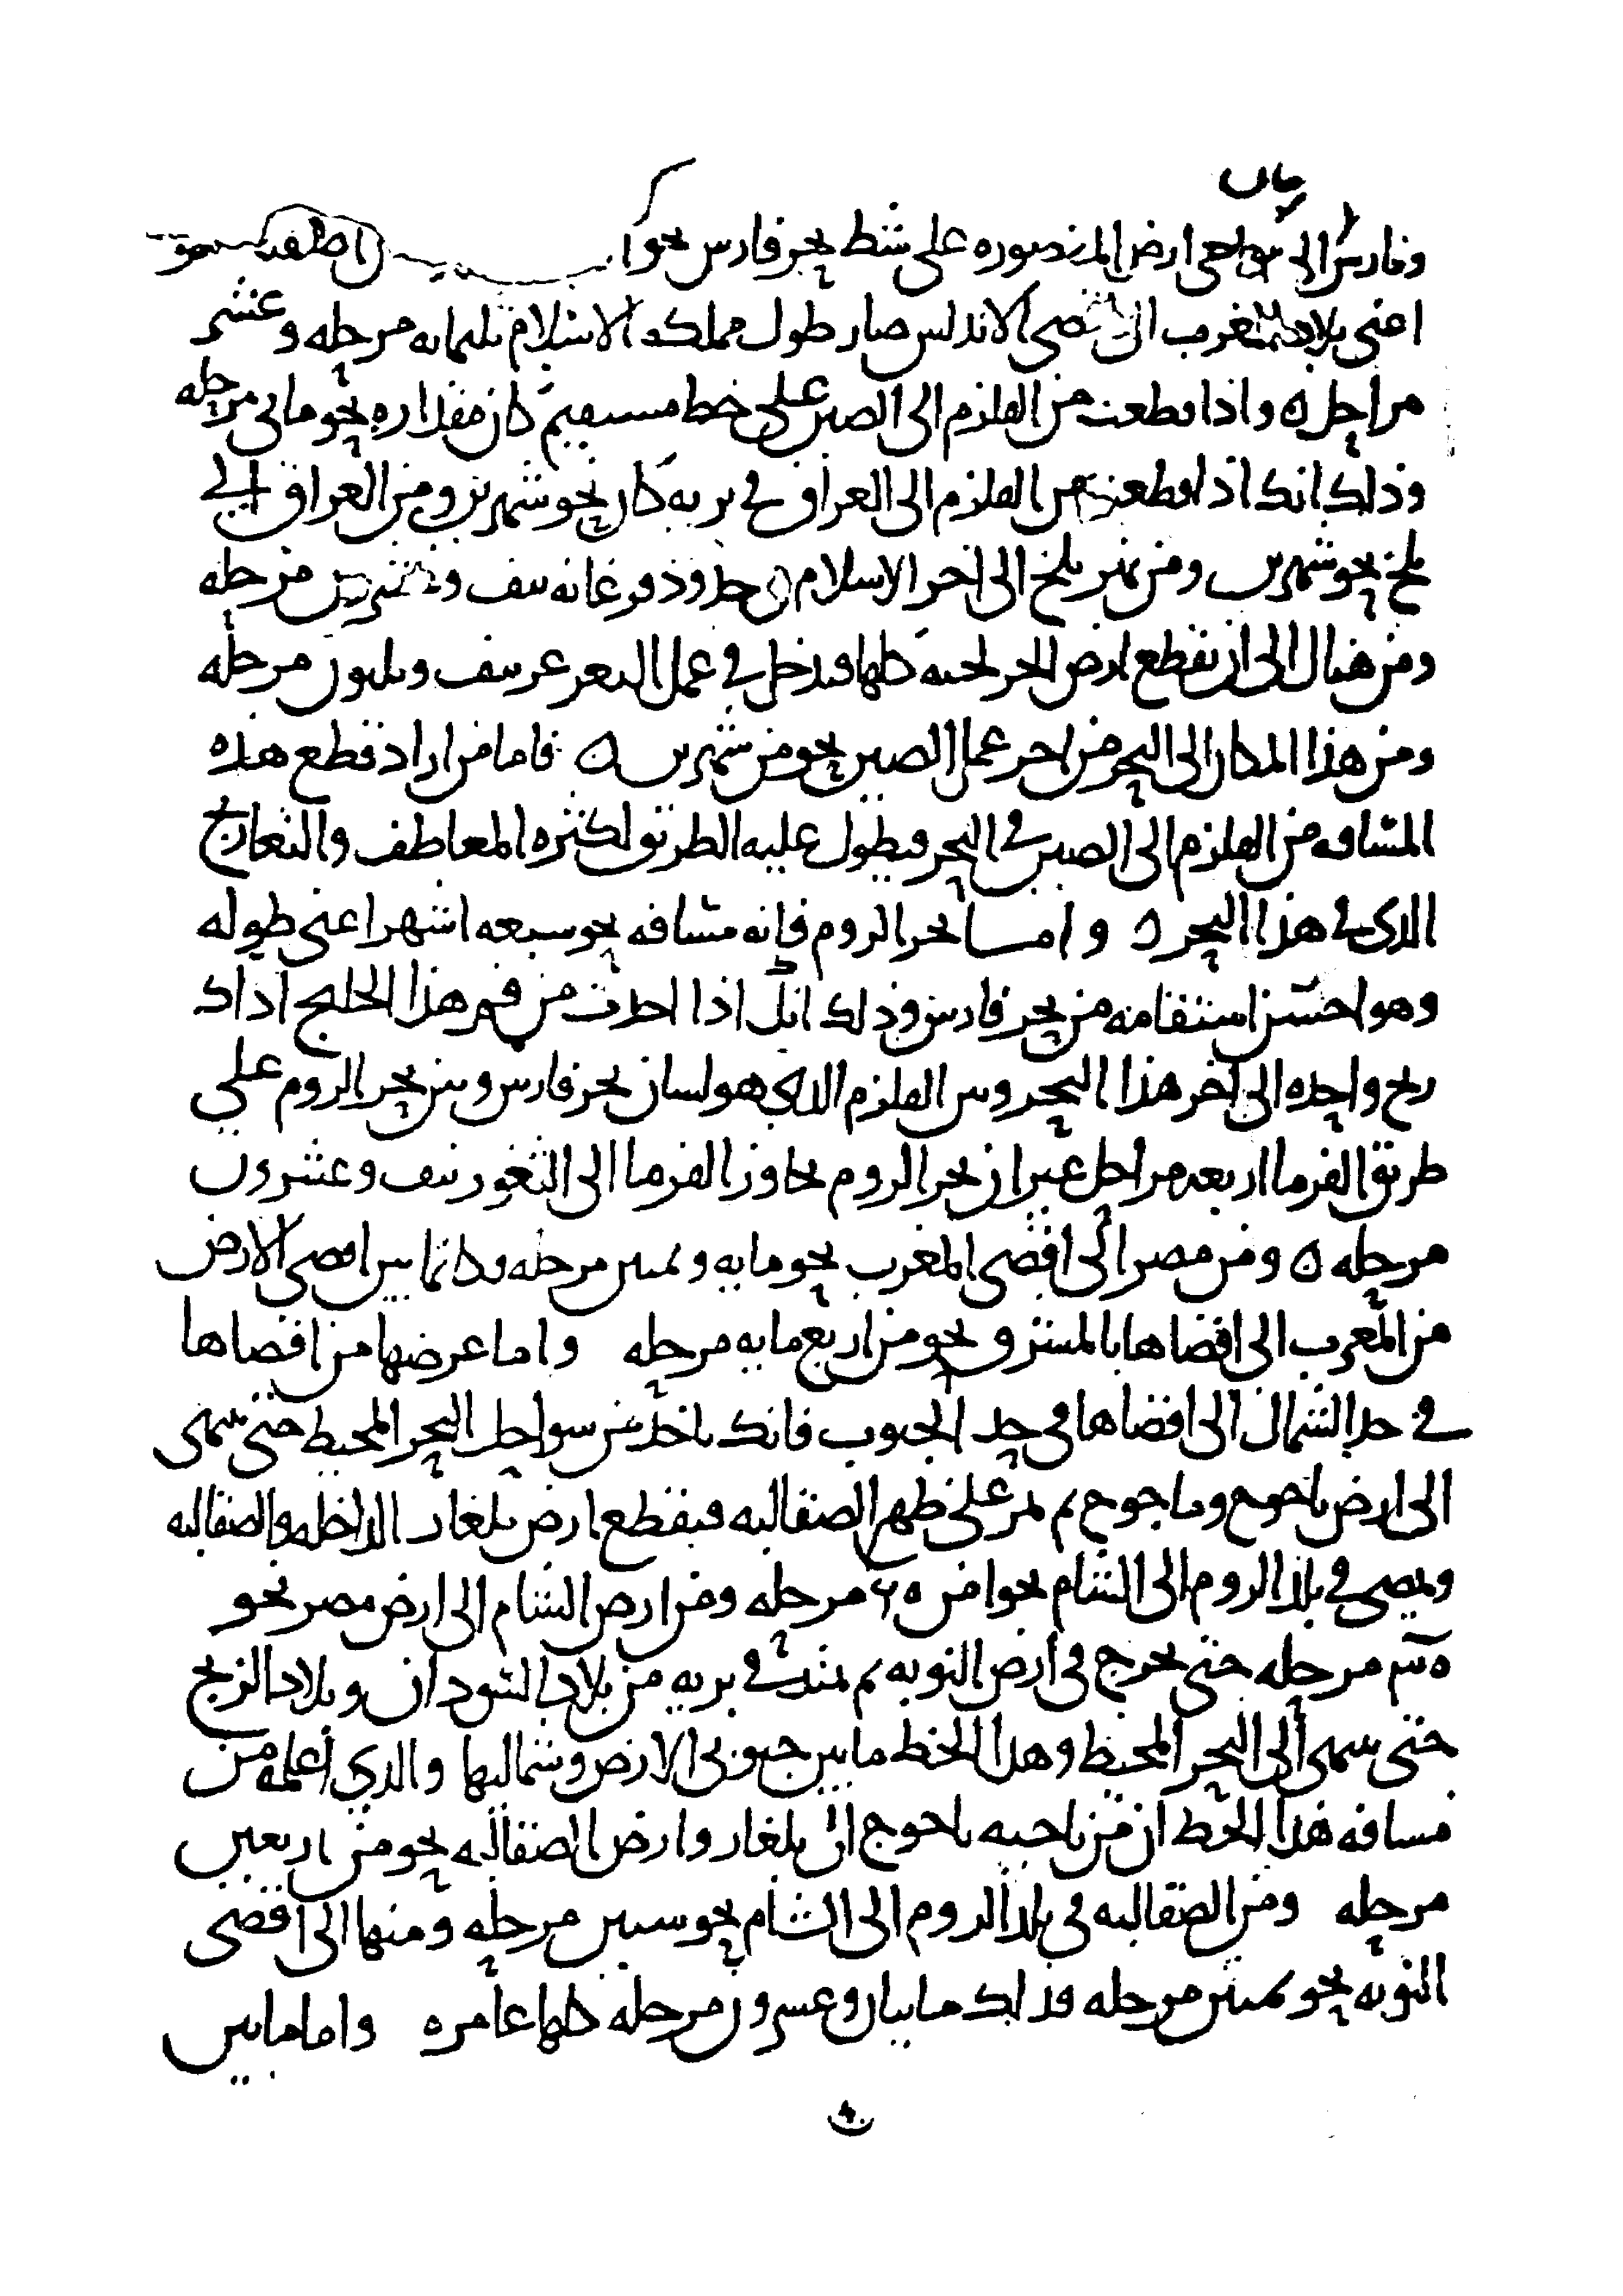 مان
وفارس الى سواحل ارض المنصوره على شط بحر فارس نحو
اعنى بلاد المغرب الى اقصى الاندلس صار طول مملكه الاسلام ثلثمايه مرحله وعشر
مراحل ٥ واذا قطعت من القلزم الى الصين على خط مستقيم كان مقداره نحو مايى مرحله
وذلك انك اذا قطعت من القلزم الى العراق فى بريه كان نحو شهر ومن العراق الى
بلخ نحو شهرين ومن نهر بلخ الى اخر الاسلام فى حدود فرغانه نيف وعشرين مرحله
ومن هناك الى ان تقطع ارض الخرلخيه كلها فتدخل فى عمل التغزغز نيف وثلثون مرحله
ومن هذا المكان الى البحر من اخر عمل الصين نحو من شهرين ٥ فاما من اراد قطع هذه
المسافه من القلزم الى الصين فى البحر فيطول عليه الطريق لكثره المعاطف والتعاريج
الذى فى هذا البحر ٥ واما بحر الروم فانه مسافه نحو سبعه اشهر اعنى طوله
وهو احسن استقامه من بحر فارس وذلك انك اذا اخذت من فم هذا الخليج اداك
ريح واحده الى اخر هذا البحر وبين القلزم الذى هو لسان بحر فارس وبين بحر الروم على
طريق الفرما اربعه مراحل غير ان بحر الروم يجاوز الفرما الى الثغور نيف وعشرون
مرحله ٥ ومن مصر الى اقصى المغرب نحو مايه وثمنين مرحله وكانما بين اقصى الارض
من المغرب الى اقصاها بالمشرق نحو من اربع مايه مرحله واما عرضها من اقصاها
فى حد الشمال الى اقصاها فى حد الجنوب فانك تاخذ من سواحل البحر المحيط حتى ينتهى
الى ارض ياجوج وماجوج ثم تمر على ظهر الصقالبه فيقطع ارض بلغار الداخله والصقالبه
ويمضى فى بلد الروم الى الشام نحوا من ٦٥ مرحله ومن ارض الشام الى ارض مصر نحو
مرحله حتى يخرج فى ارض النوبه ثم تمتد فى بريه من بلاد السودان وبلاد الزنج
حتى ينتهى الى البحر المحيط وهذا الخط ما بين جنوبى الارض وشماليها والذى اعلمه من
مسافه هذا الخط ان من ناحيه ياجوج الى بلغار وارض الصقالبه نحو من اربعين
مرحله ومن الصقالبه فى بلد الروم الى الشام نحو ستين مرحله ومنها الى اقصى
النوبه نحو ثمنين مرحله فذلك مايتان وعشرون مرحله كلها عامره واما ما بين